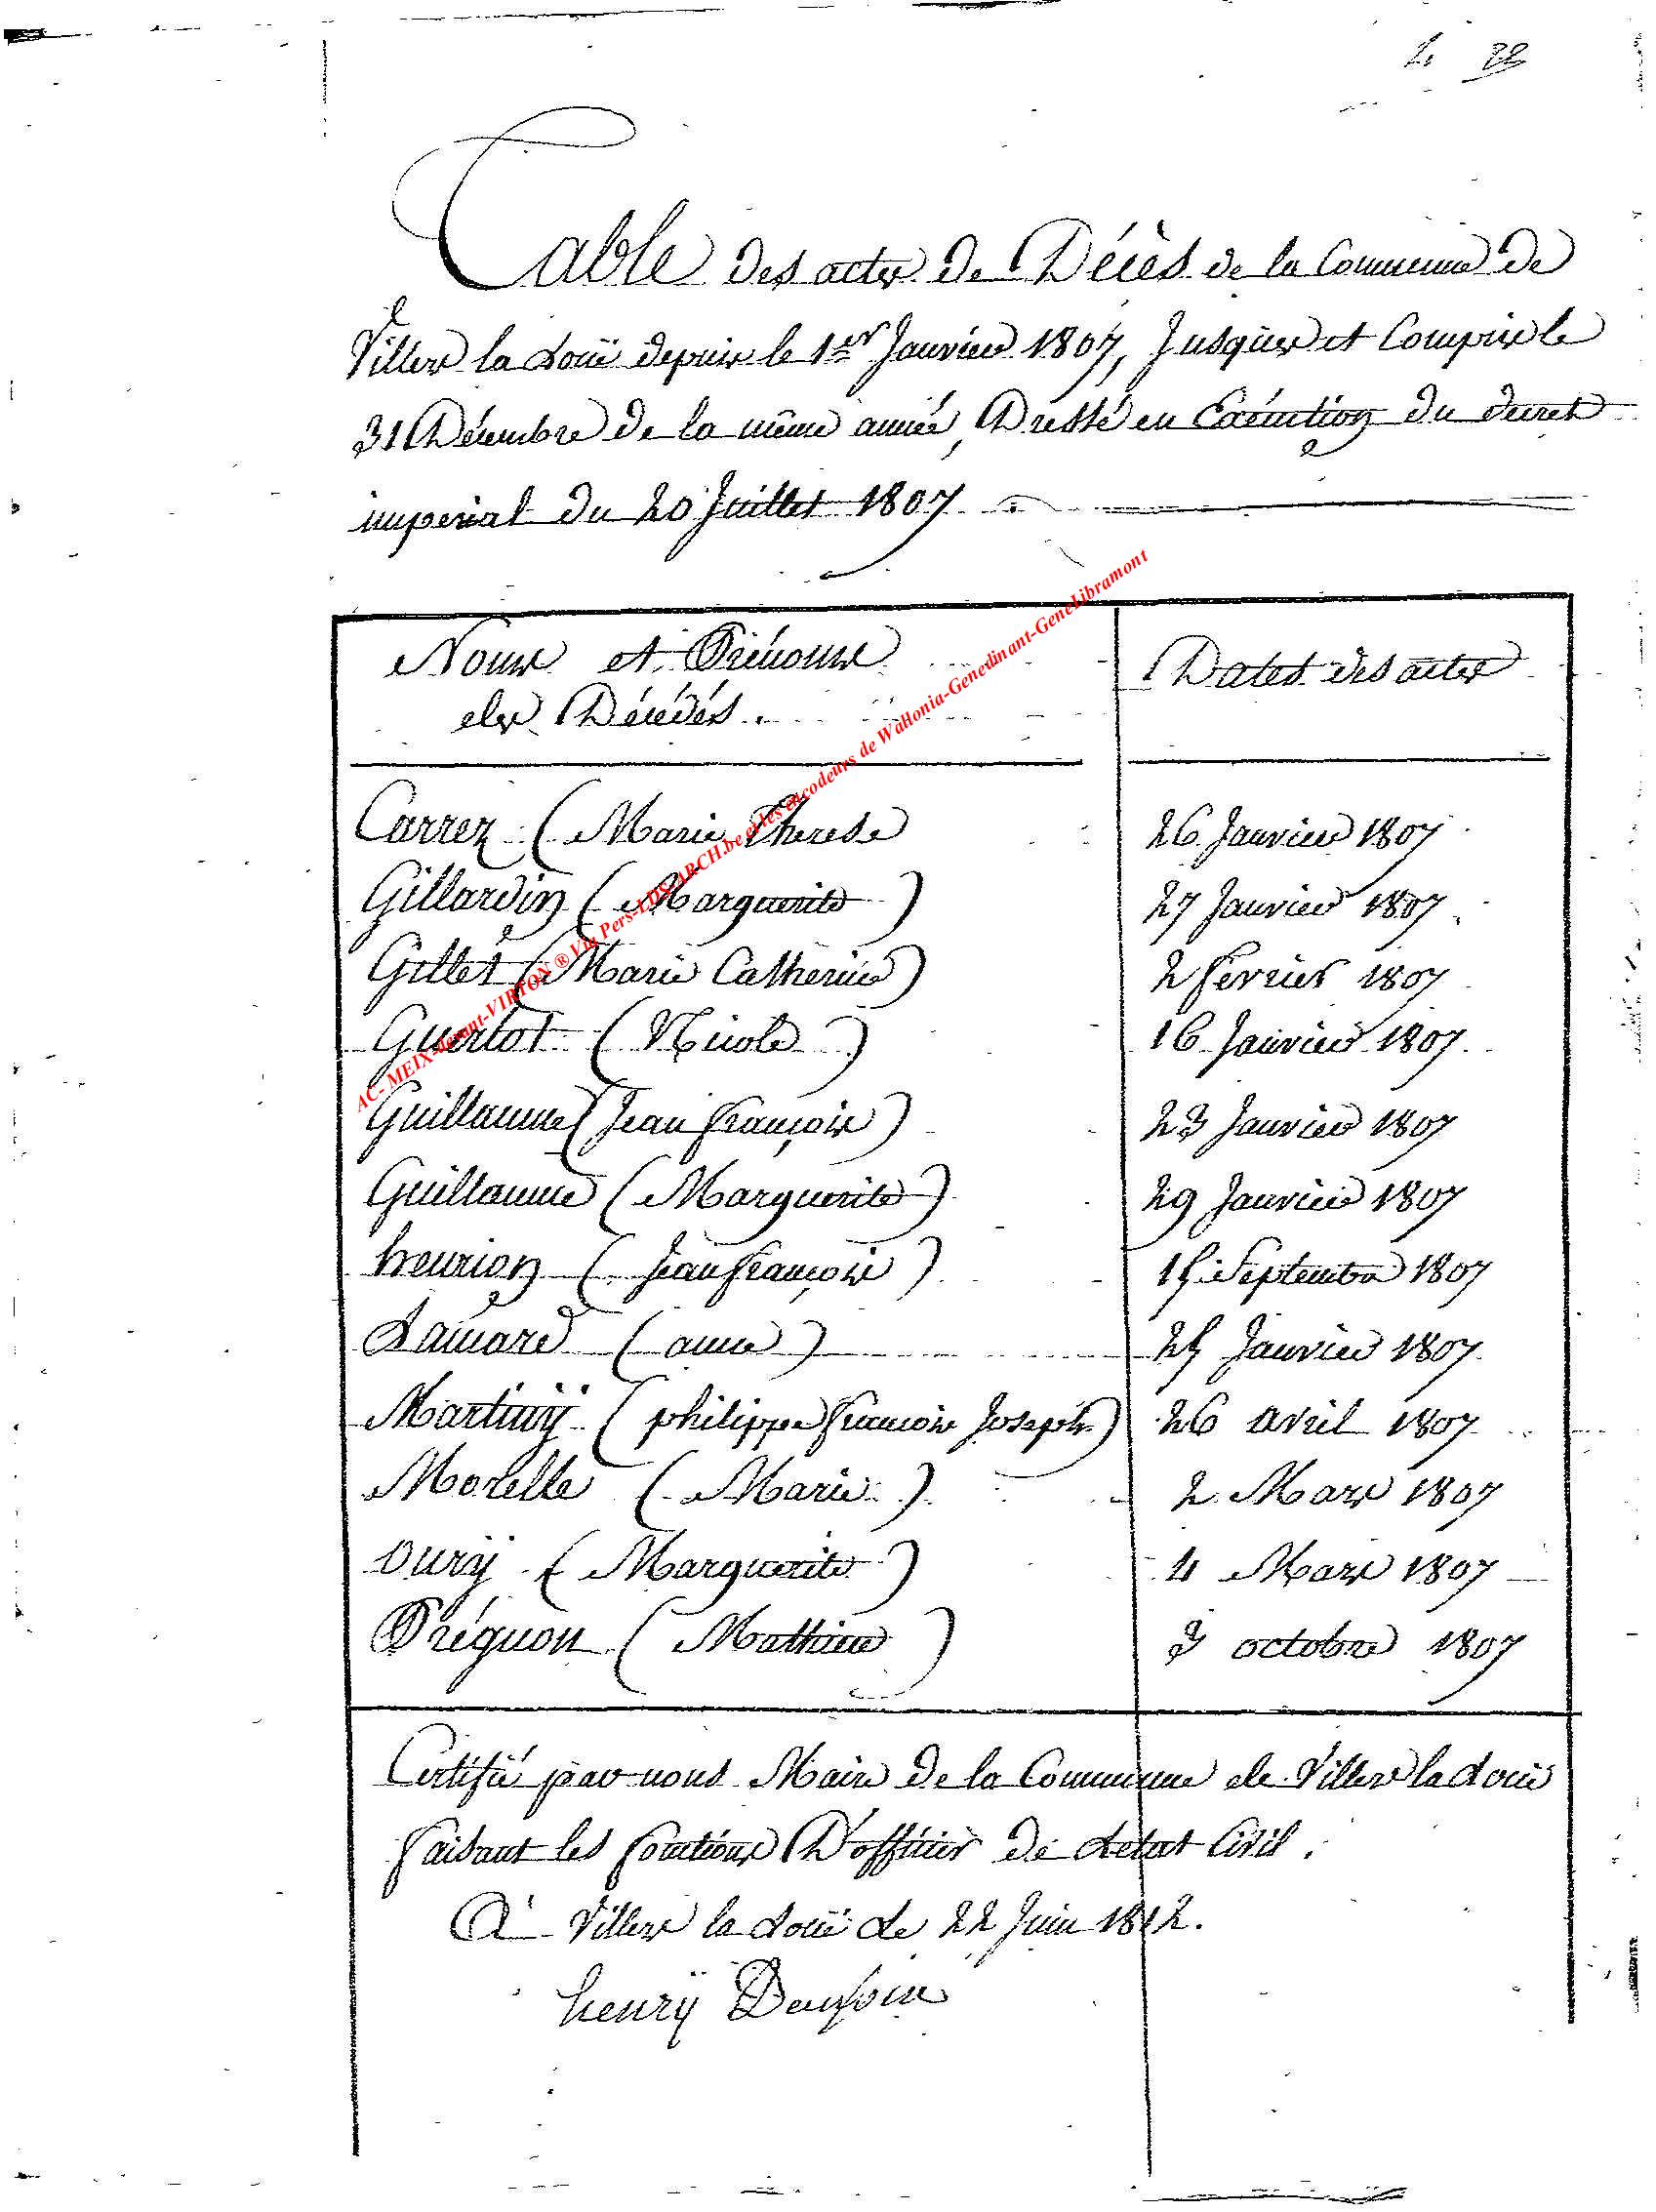 22
Table des actes de Décès de la Commune de
Villers la Loüe depuis le 1er Janvier 1807, Jusques et Compris le
31 Décembre de la même année, Dressé en Exécution du decret
imperial du 20 Juillet 1807
Noms et Prénoms
des Décédés.
Dates des actes
Carrez (Marie Therese 26 Janvier 1807
Gillardin (Marguerite) 27 Janvier 1807
Gillet (Marie Catherine) 2 fevrier 1807
Guerlot (Nicole) 16 Janvier 1807
Guillaume (Jean françois) 23 Janvier 1807
Guillaume (Marguerite) 29 Janvier 1807
henrion (Jean françois) 15 Septembre 1807
Lamord (anne) 25 Janvier 1807
Martinÿ (philippe françois Joseph) 26 avril 1807
Morelle (Marie) 2 Mars 1807
Ourÿ (Marguerite) 4 Mars 1807
Préguon (Mathieu) 3 octobre 1807
Certifié par nous Maire de la Commune de Villers la Loüe
faisant les fonctions D'officier de Letat Civil.
A Villers la Loüe Le 22 Juin 1812.
henrÿ
AC- MEIX-devant-VIRTON ® Via Pers-LDS-ARCH.be et les encodeurs de Wallonia-Genedinant-GeneLibramont